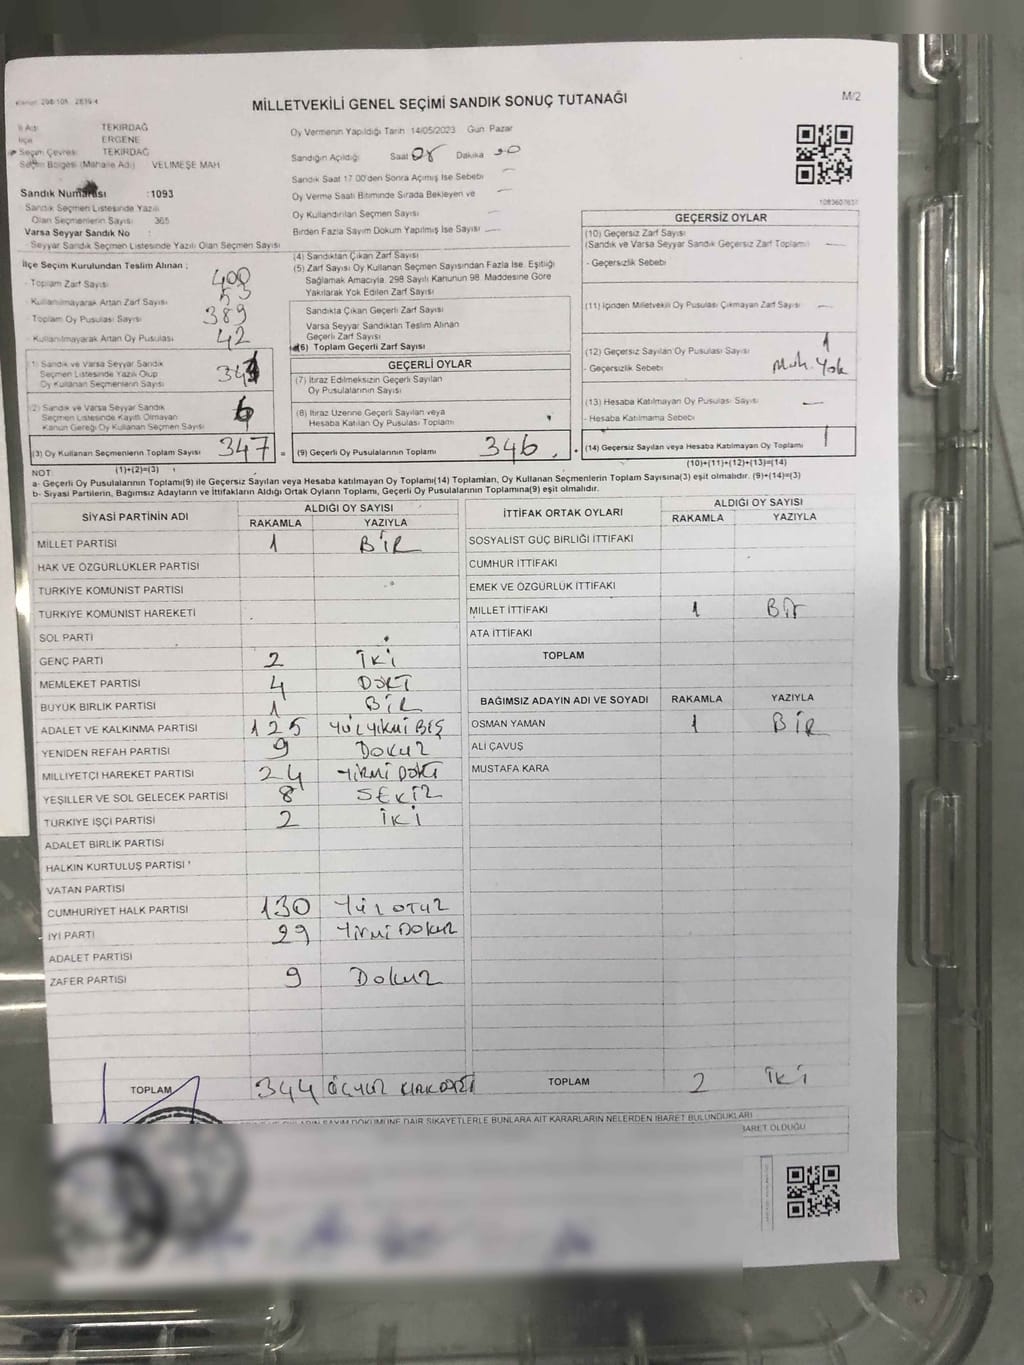 MİLLETVEKİLİ GENEL SEÇİMİ SANDIK SONUÇ TUTANAĞI
M/2
İl Adı TEKİRDAĞ
İlçe ERGENE
Seçim Çevresi TEKİRDAĞ
Seçim Bölgesi (Mahalle Adı) VELİMEŞE MAH
Sandık Numarası :1093
Sandık Seçmen Listesinde Yazılı
Olan Seçmenlerin Sayısı 365
Varsa Seyyar Sandık No :
Seyyar Sandık Seçmen Listesinde Yazılı Olan Seçmen Sayısı
Oy Vermenin Yapıldığı Tarih 14/05/2023 Gün: Pazar
Sandığın Açıldığı Saat 08 Dakika
Sandık Saat 17:00'den Sonra Açılmış İse Sebebi
Oy Verme Saati Bitiminde Sırada Bekleyen ve
Oy Kullandırılan Seçmen Sayısı
Birden Fazla Sayım Döküm Yapılmış İse Sayısı
İlçe Seçim Kurulundan Teslim Alınan ;
- Toplam Zarf Sayısı 400
- Kullanılmayarak Artan Zarf Sayısı 53
- Toplam Oy Pusulası Sayısı 389
- Kullanılmayarak Artan Oy Pusulası 42
(1) Sandık ve Varsa Seyyar Sandık
Seçmen Listesinde Yazılı Olup
Oy Kullanan Seçmenlerin Sayısı
(2) Sandık ve Varsa Seyyar Sandık
Seçmen Listesinde Kayıtlı Olmayan
Kanun Gereği Oy Kullanan Seçmen Sayısı 6
(3) Oy Kullanan Seçmenlerin Toplam Sayısı 347 =
(4) Sandıktan Çıkan Zarf Sayısı
(5) Zarf Sayısı Oy Kullanan Seçmen Sayısından Fazla İse, Eşitliği
Sağlamak Amacıyla, 298 Sayılı Kanunun 98. Maddesine Göre
Yakılarak Yok Edilen Zarf Sayısı
Sandıkta Çıkan Geçerli Zarf Sayısı
Varsa Seyyar Sandıktan Teslim Alınan
Geçerli Zarf Sayısı
(6) Toplam Geçerli Zarf Sayısı
GEÇERLİ OYLAR
(7) İtiraz Edilmeksizin Geçerli Sayılan
Oy Pusulalarının Sayısı
(8) İtiraz Üzerine Geçerli Sayılan veya
Hesaba Katılan Oy Pusulası Toplamı
(9) Geçerli Oy Pusulalarının Toplamı 346
GEÇERSİZ OYLAR
(10) Geçersiz Zarf Sayısı
(Sandık ve Varsa Seyyar Sandık Geçersiz Zarf Toplamı)
- Geçersizlik Sebebi
(11) İçinden Milletvekili Oy Pusulası Çıkmayan Zarf Sayısı
(12) Geçersiz Sayılan Oy Pusulası Sayısı 1
Geçersizlik Sebebi Müh. Yok
(13) Hesaba Katılmayan Oy Pusulası Sayısı
- Hesaba Katılmama Sebebi
(14) Geçersiz Sayılan veya Hesaba Katılmayan Oy Toplamı 1
NOT: (1)+(2)=(3)
(10)+(11)+(12)+(13)=(14)
a- Geçerli Oy Pusulalarının Toplamı(9) ile Geçersiz Sayılan veya Hesaba katılmayan Oy Toplamı(14) Toplamları, Oy Kullanan Seçmenlerin Toplam Sayısına(3) eşit olmalıdır. (9)+(14)=(3)
b- Siyasi Partilerin, Bağımsız Adayların ve İttifakların Aldığı Ortak Oyların Toplamı, Geçerli Oy Pusulalarının Toplamına(9) eşit olmalıdır.
SİYASİ PARTİNİN ADI ALDIĞI OY SAYISI
RAKAMLA YAZIYLA
MİLLET PARTİSİ 1 BİR
HAK VE ÖZGÜRLÜKLER PARTİSİ
TÜRKİYE KOMÜNİST PARTİSİ
TÜRKİYE KOMÜNİST HAREKETİ
SOL PARTİ
GENÇ PARTİ 2 İKİ
MEMLEKET PARTİSİ 4 DÖRT
BÜYÜK BİRLİK PARTİSİ 1 BİR
ADALET VE KALKINMA PARTİSİ 125 YÜZ YİRMİ BEŞ
YENİDEN REFAH PARTİSİ 9 DOKUZ
MİLLİYETÇİ HAREKET PARTİSİ 24 YİRMİ DÖRT
YEŞİLLER VE SOL GELECEK PARTİSİ 8 SEKİZ
TÜRKİYE İŞÇİ PARTİSİ 2 İKİ
ADALET BİRLİK PARTİSİ
HALKIN KURTULUŞ PARTİSİ
VATAN PARTİSİ
CUMHURİYET HALK PARTİSİ 130 YÜZ OTUZ
İYİ PARTİ 29 YİRMİ DOKUZ
ADALET PARTİSİ
ZAFER PARTİSİ 9 DOKUZ
TOPLAM 344 ÜÇYÜZ KIRKDÖRT
İTTİFAK ORTAK OYLARI ALDIĞI OY SAYISI
RAKAMLA YAZIYLA
SOSYALİST GÜÇ BİRLİĞİ İTTİFAKI
CUMHUR İTTİFAKI
EMEK VE ÖZGÜRLÜK İTTİFAKI
MİLLET İTTİFAKI 1 BİR
ATA İTTİFAKI
TOPLAM
BAĞIMSIZ ADAYIN ADI VE SOYADI RAKAMLA YAZIYLA
OSMAN YAMAN 1 BİR
ALİ ÇAVUŞ
MUSTAFA KARA
TOPLAM 2 İKİ
DÖKÜMÜNE DAİR ŞİKAYETLERLE BUNLARA AİT KARARLARIN NELERDEN İBARET BULUNDUKLARI
İBARET OLDUĞU